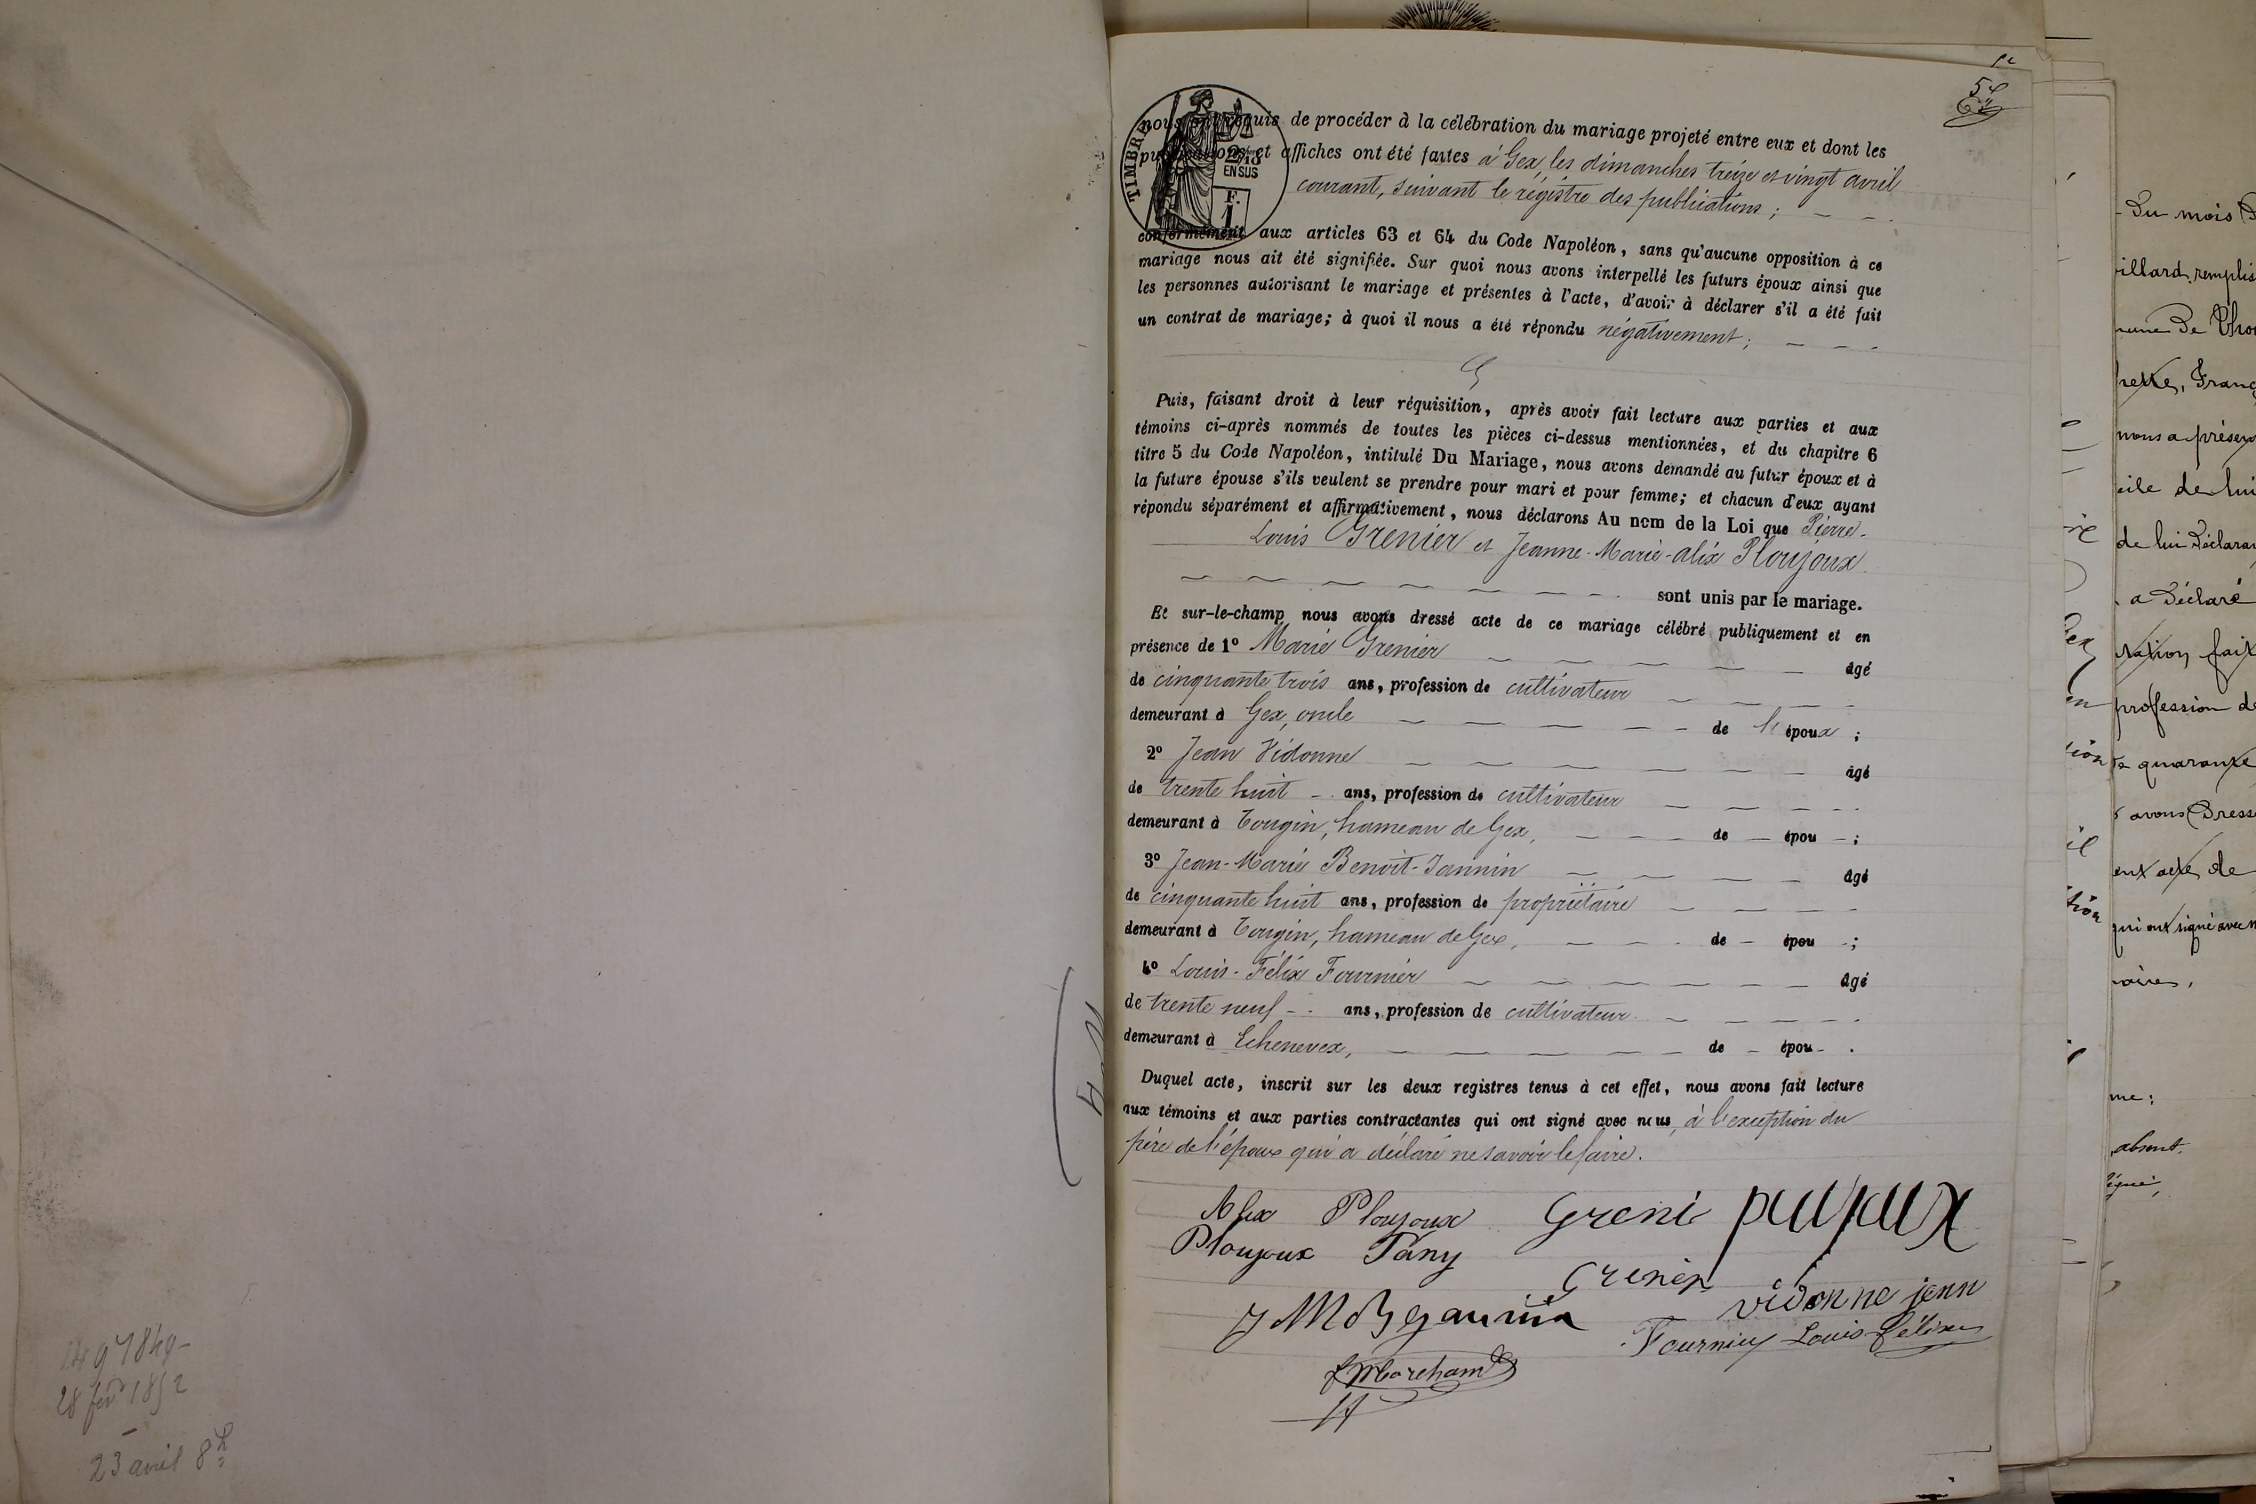 14 9 1849-
28 fév 1852
23 avril 8h
54
TIMBRE
2/10
EN SUS
F.
1
nous ont requis de procéder à la célébration du mariage projeté entre eux et dont les
publications et affiches ont été faites à Gex, les dimanches treize et vingt avril
courant, suivant le régistre des publications ;
conformément aux articles 63 et 64 du Code Napoléon, sans qu'aucune opposition à ce
mariage nous ait été signifiée. Sur quoi nous avons interpellé les futurs époux ainsi que
les personnes autorisant le mariage et présentes à l'acte, d'avoir à déclarer s'il a été fait
un contrat de mariage; à quoi il nous a été répondu négativement ;
Puis, faisant droit à leur réquisition, après avoir fait lecture aux parties et aux
témoins ci-après nommés de toutes les pièces ci-dessus mentionnées, et du chapitre 6
titre 5 du Code Napoléon, intitulé Du Mariage, nous avons demandé au futur époux et à
la future épouse s'ils veulent se prendre pour mari et pour femme; et chacun d'eux ayant
répondu séparément et affirmativement, nous déclarons Au nom de la Loi que Pierre-
Louis Grenier et Jeanne-Marie-Alix Ploujoux
sont unis par le mariage.
Et sur-le-champ nous avons dressé acte de ce mariage célébré publiquement et en
présence de 1º Marie Grenier âgé
de cinquante trois ans, profession de cultivateur
demeurant à Gex, oncle de l'époux ;
2º Jean Vidonne âgé
de trente huit ans, profession de cultivateur
demeurant à Tougin, hameau de Gex, de — épou — ;
3º Jean-Marie Benoit-Jannin âgé
de cinquante huit ans, profession de propriétaire
demeurant à Tougin, hameau de Gex, de — épou — ;
4º Louis-Félix Fournier âgé
de trente neuf ans, profession de cultivateur
demeurant à Echenevex, de — épou — .
Duquel acte, inscrit sur les deux registres tenus à cet effet, nous avons fait lecture
aux témoins et aux parties contractantes qui ont signé avec nous, à l'exception du
père de l'époux qui a déclaré ne savoir le faire.
Alix Ploujoux Greni
Ploujoux Fány
Grenier
vidonne jean
Fournier Louis félix
J Marchand
Du mois
illard, remplis
de
Franç
nous a présen
de lui
de lui déclaran
a déclaré
fait
profession de
quarante
avons dress
de
qui ont signé avec n
me :
absent.